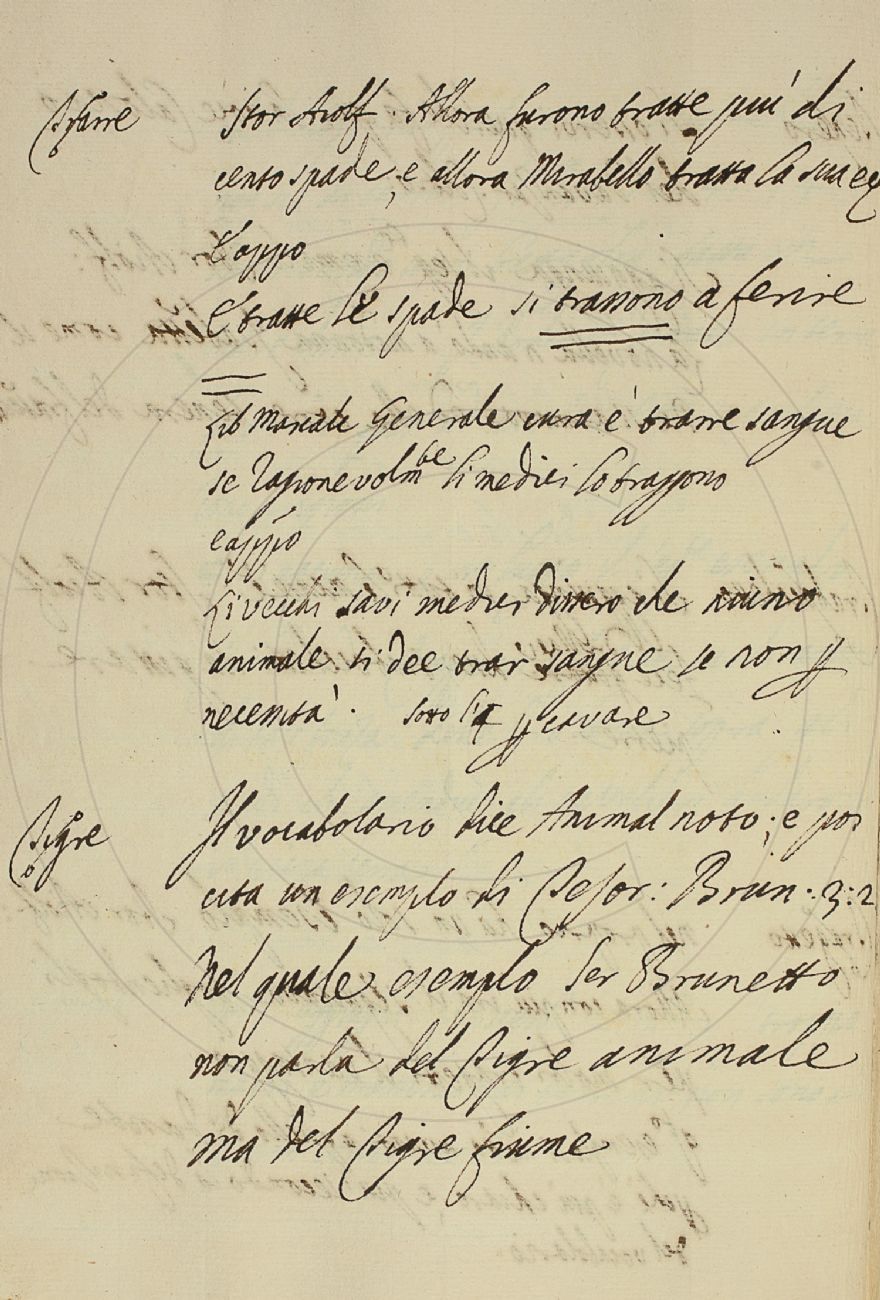 Trarre Stor Aiolf. Allora furono tratte piu' di
cento spade, e allora Mirabello tratta la sua ec
E appo
E tratte le spade si trassono a ferire
Lib Mascalc Generale cura é trarre sangue
se ragionevolm.te li medici lo traggono
e appo
Li vecchi savi medici dissero che niuno
animale si dee trar sangue se non p
necessita'. sotto la p cavare
Tigre Il vocabolario dice Animal noto; e poi
cita un esemplo di Tesor: Brun. 3:2
Nel quale esemplo Ser Brunetto
non parla del Tigre animale
ma del Tigre fiume